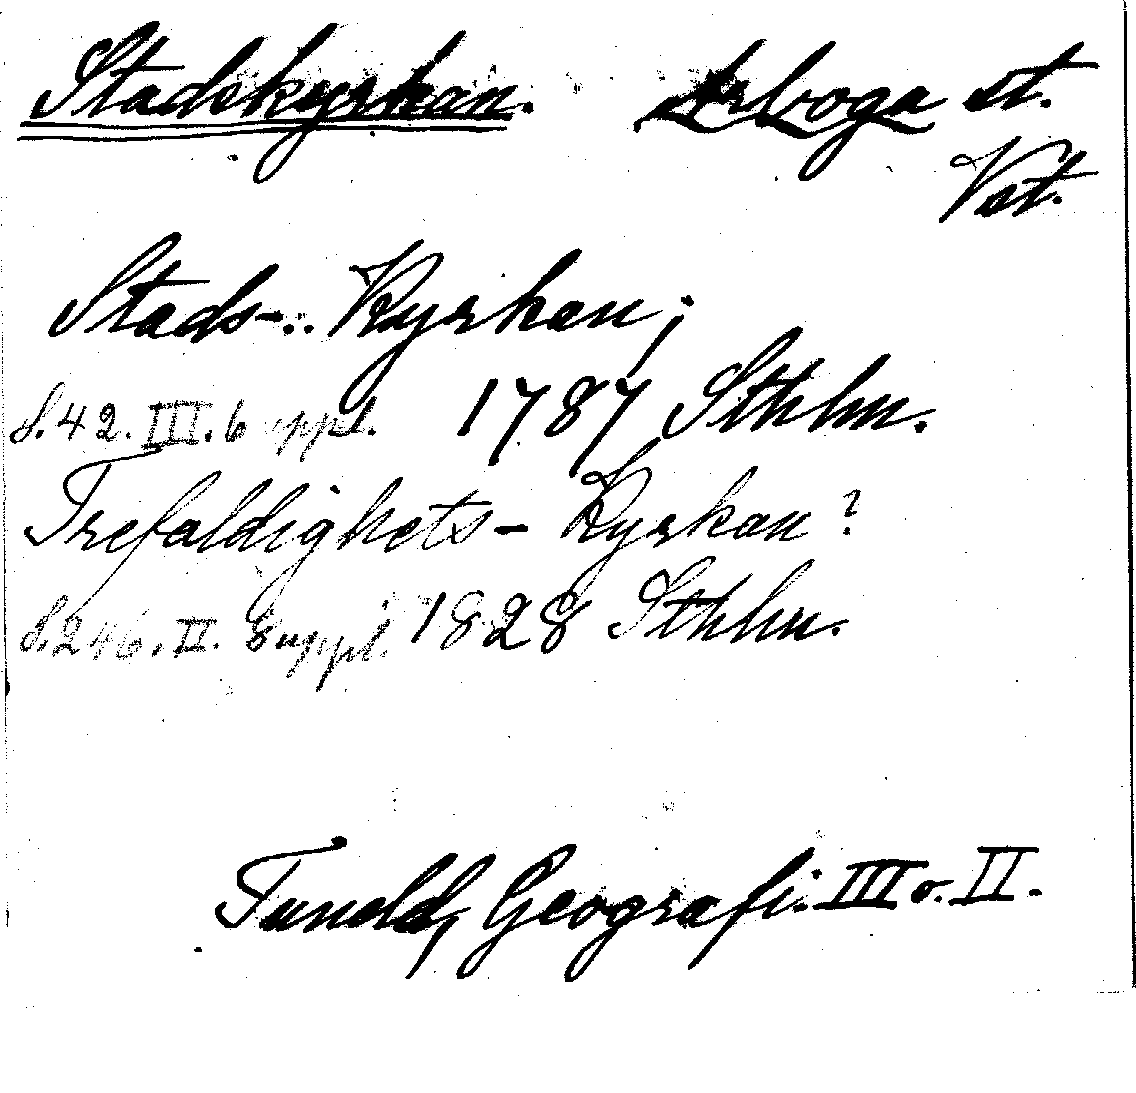 Stadskyrkan. Arboga st.
Vst.
Stads-.. Kyrkan;
s. 42. III. 6 uppl. 1787 Sthlm.
Trefaldighets- Kyrkan?
s. 246. II. 8 uppl. 1828 Sthlm.
Tuneld, Geografi. III o. II.